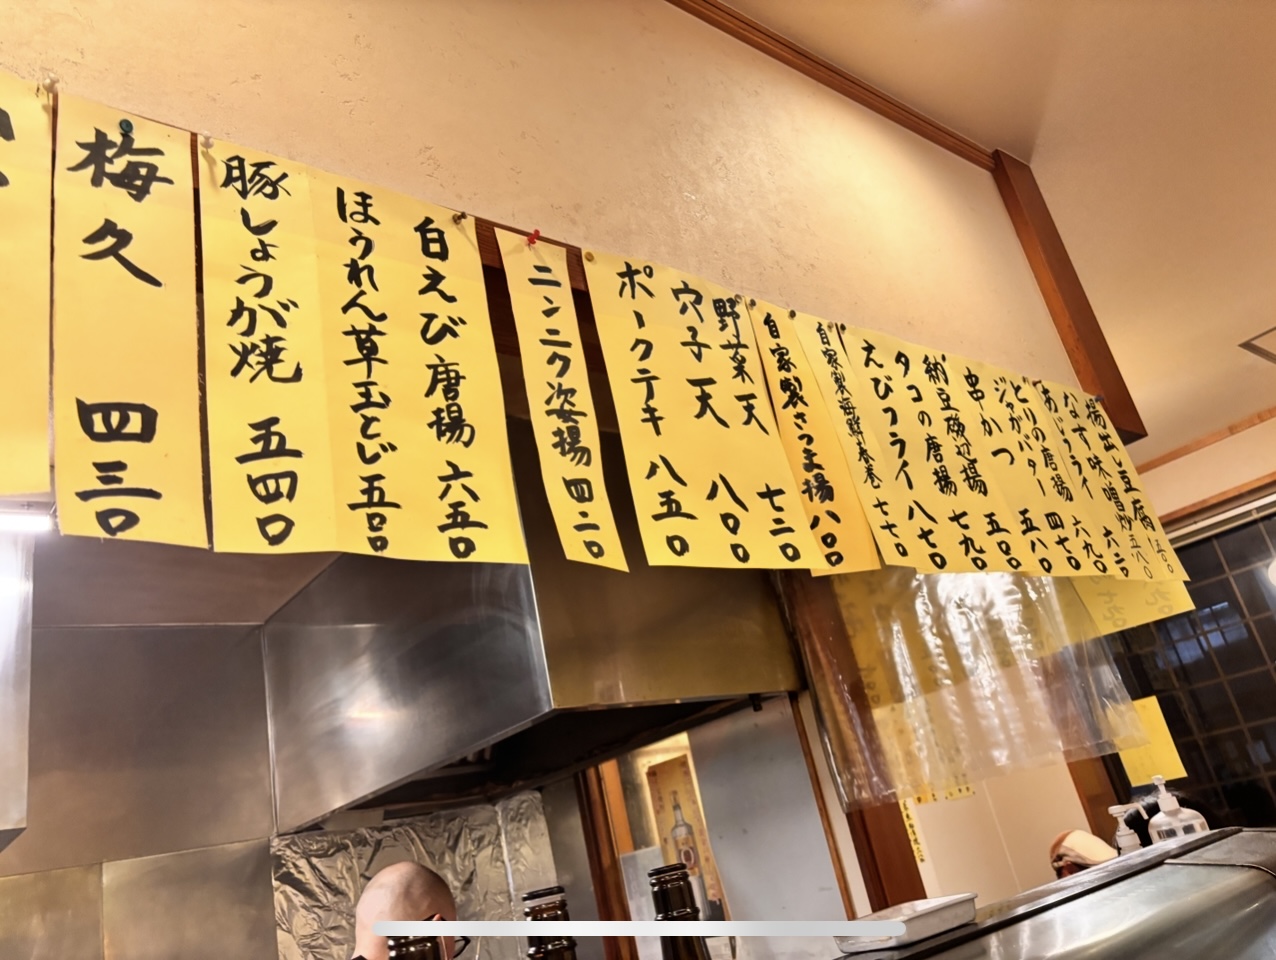 揚出し豆腐 五五〇
なす味噌炒 五八〇
あじフライ 六二〇
とりの唐揚 六九〇
ジャガバター 四七〇
串かつ 五八〇
納豆磯部揚 五五〇
タコの唐揚 七九〇
えびフライ 八七〇
自家製海鮮春巻 七七〇
自家製さつま揚 八〇〇
野菜天 七二〇
穴子天 八〇〇
ポークテキ 八五〇
ニンニク姿揚 四二〇
白えび唐揚 六五〇
ほうれん草玉とじ 五五〇
豚しょうが焼 五四〇
梅久 四三〇